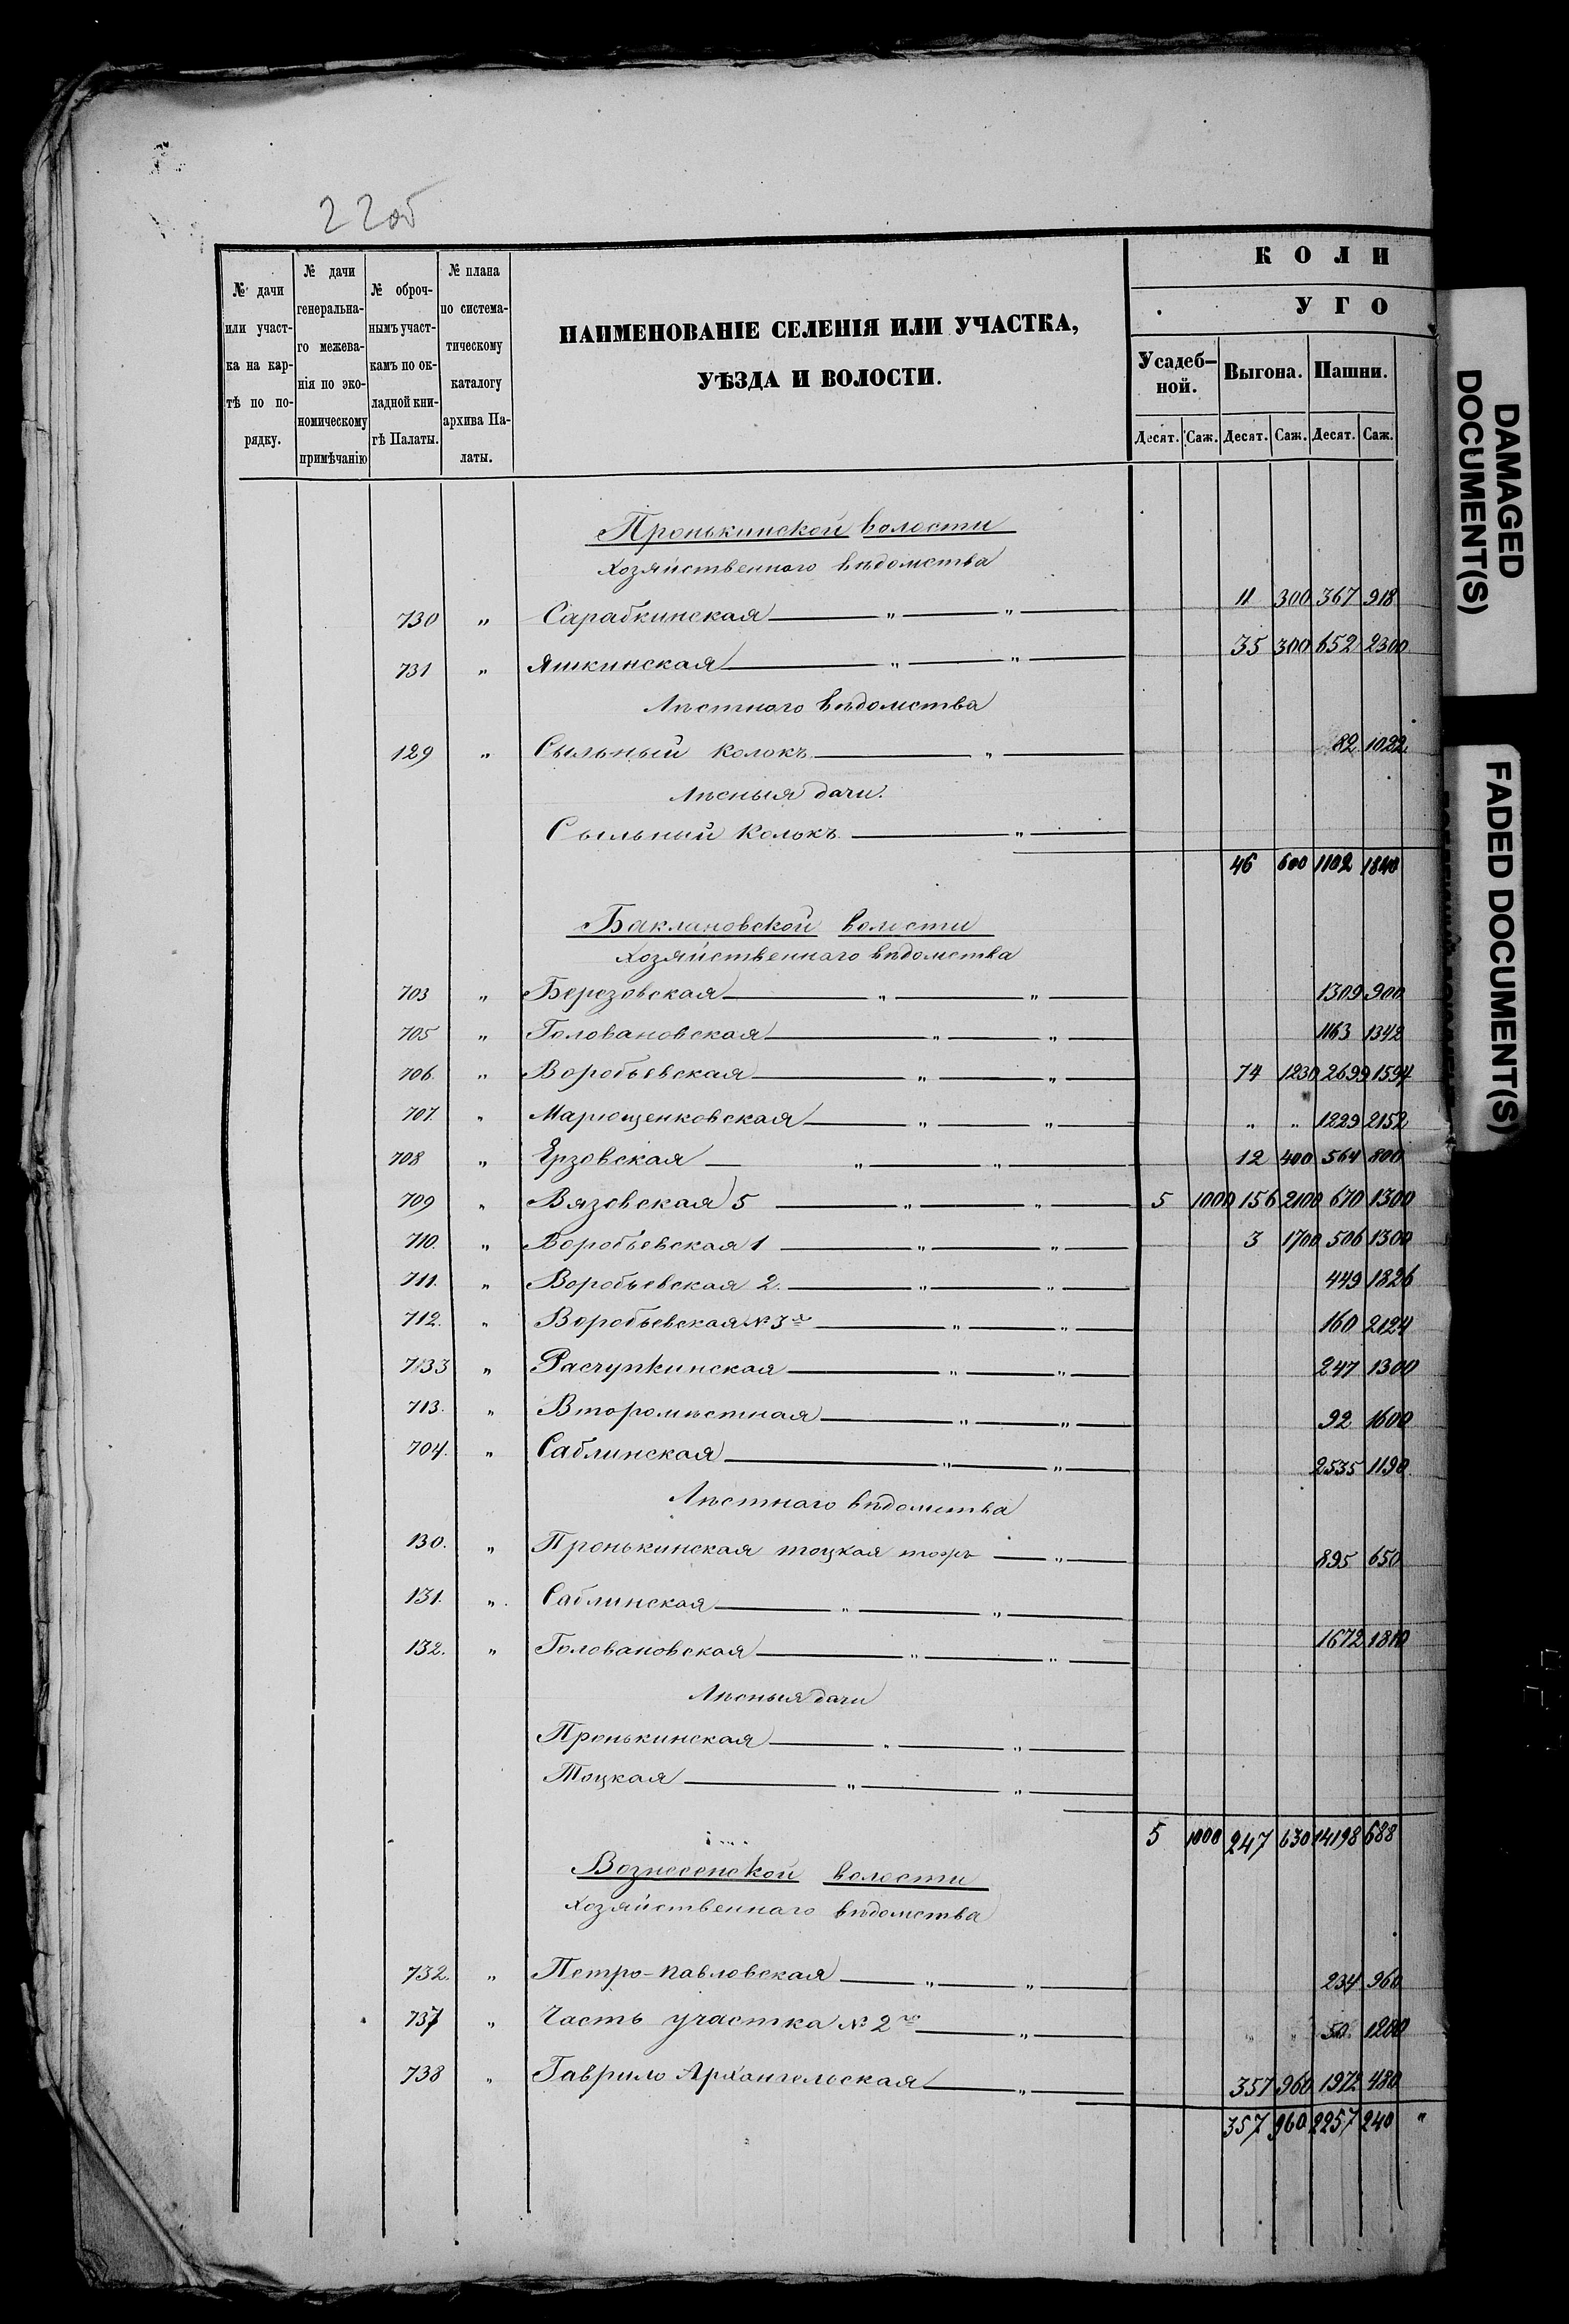 22об
К О Л И
У Г О
№ дачи или участ-ка на кар-тѣ по по-рядку.
№ дачи генеральна-го межева-нія по эко-номическому примѣчанію
№ оброч-нымъ участ-камъ по ок-ладной кни-гѣ Палаты.
№ плана по система-тическому каталогу архива Па-латы.
НАИМЕНОВАНІЕ СЕЛЕНІЯ ИЛИ УЧАСТКА,
УѢЗДА И ВОЛОСТИ.
Усадеб-ной. Выгона. Пашни.
Десят. Саж. Десят. Саж. Десят. Саж.
Пронькинской волости
Хозяйственнаго вѣдомства
730 " Сарабкинская " " 11 300 367 918
731 " Яшкинская " " 35 300 652 2300
Лѣстнаго вѣдомства
129 " Сыльный колокъ " 82 1022
Лѣсныя дачи.
Сыльный Колокъ "
46 600 1102 1840
Баклановской волости
Хозяйственнаго вѣдомства
703 " Березовская " " 1309 900
705 " Головановская " " 1163 1342
706 " Воробьевская " " 74 1230 2699 1594
707. " Марющенковская " " " " 1229 2152
708 " Ерзовская " " 12 400 564 800
709 " Вязовская 5 " " 5 1000 156 2100 670 1300
710. " Воробьевская 1 " " 3 1700 506 1300
711. " Воробьевская 2. " " 449 1826
712. " Воробьевская № 3я " " 160 2124
7133 " Расчупкинская " " 247 1300
713. " Второмѣстная " " 92 1600
704. " Саблинская " " 2535 1190
Лѣстнаго вѣдомства
130. " Пронькинская тоцкая тожъ " 895 650
131. " Саблинская " "
132. " Головановская " " 1672 1810
Лѣсныя дачи
Пронькинская " "
Тоцкая " "
5 1000 247 630 14198 688
Вознесенской волости
Хозяйственнаго вѣдомства
732. " Петро-павловская " " 234 960
737 " Часть участка № 2го " 50 1200
738 " Гаврило Архангельская " 357 960 1972 480
357 960 2257 240 "
DAMAGED
DOCUMENT(S)
FADED DOCUMENT(S)